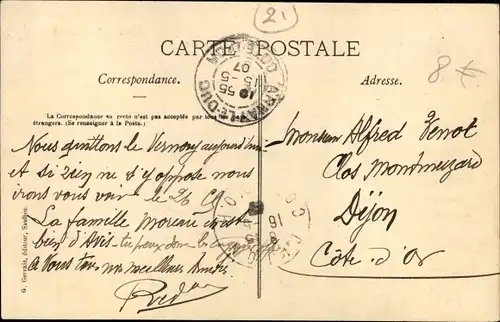 21
CARTE POSTALE
8 €
Correspondance.
Adresse.
La Correspondance au recto n'est pas acceptée par tous les
étrangers. (Se renseigner à la Poste.)
ARNAY-LE-DUC
COTE-D'OR
10 55
5-5
07
Nous quittons le Vernoy aujourd'hui
et si rien ne s'y oppose nous
irons vous voir le 26 Ct
La famille Moreau est
bien d'Avis tu peux donc
A Vous tous nos meilleures Amitiés
Monsieur Alfred
Clos Montmuzard
Dijon
Côte-d'Or
G. Gervais, éditeur, Saulieu.